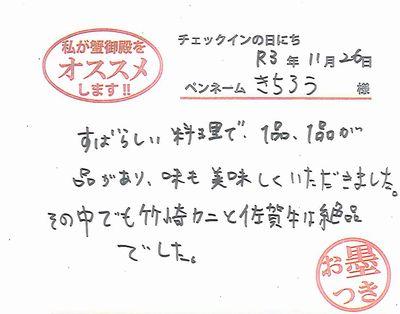 私が蟹御殿を
オススメ
します!!
チェックインの日にち
R3 年 11月 26日
ペンネーム きちろう 様
すばらしい 料理で、1品、1品が
品があり、味も 美味しくいただきました。
その中でも竹崎カニと佐賀牛は絶品
でした。
お墨
つき